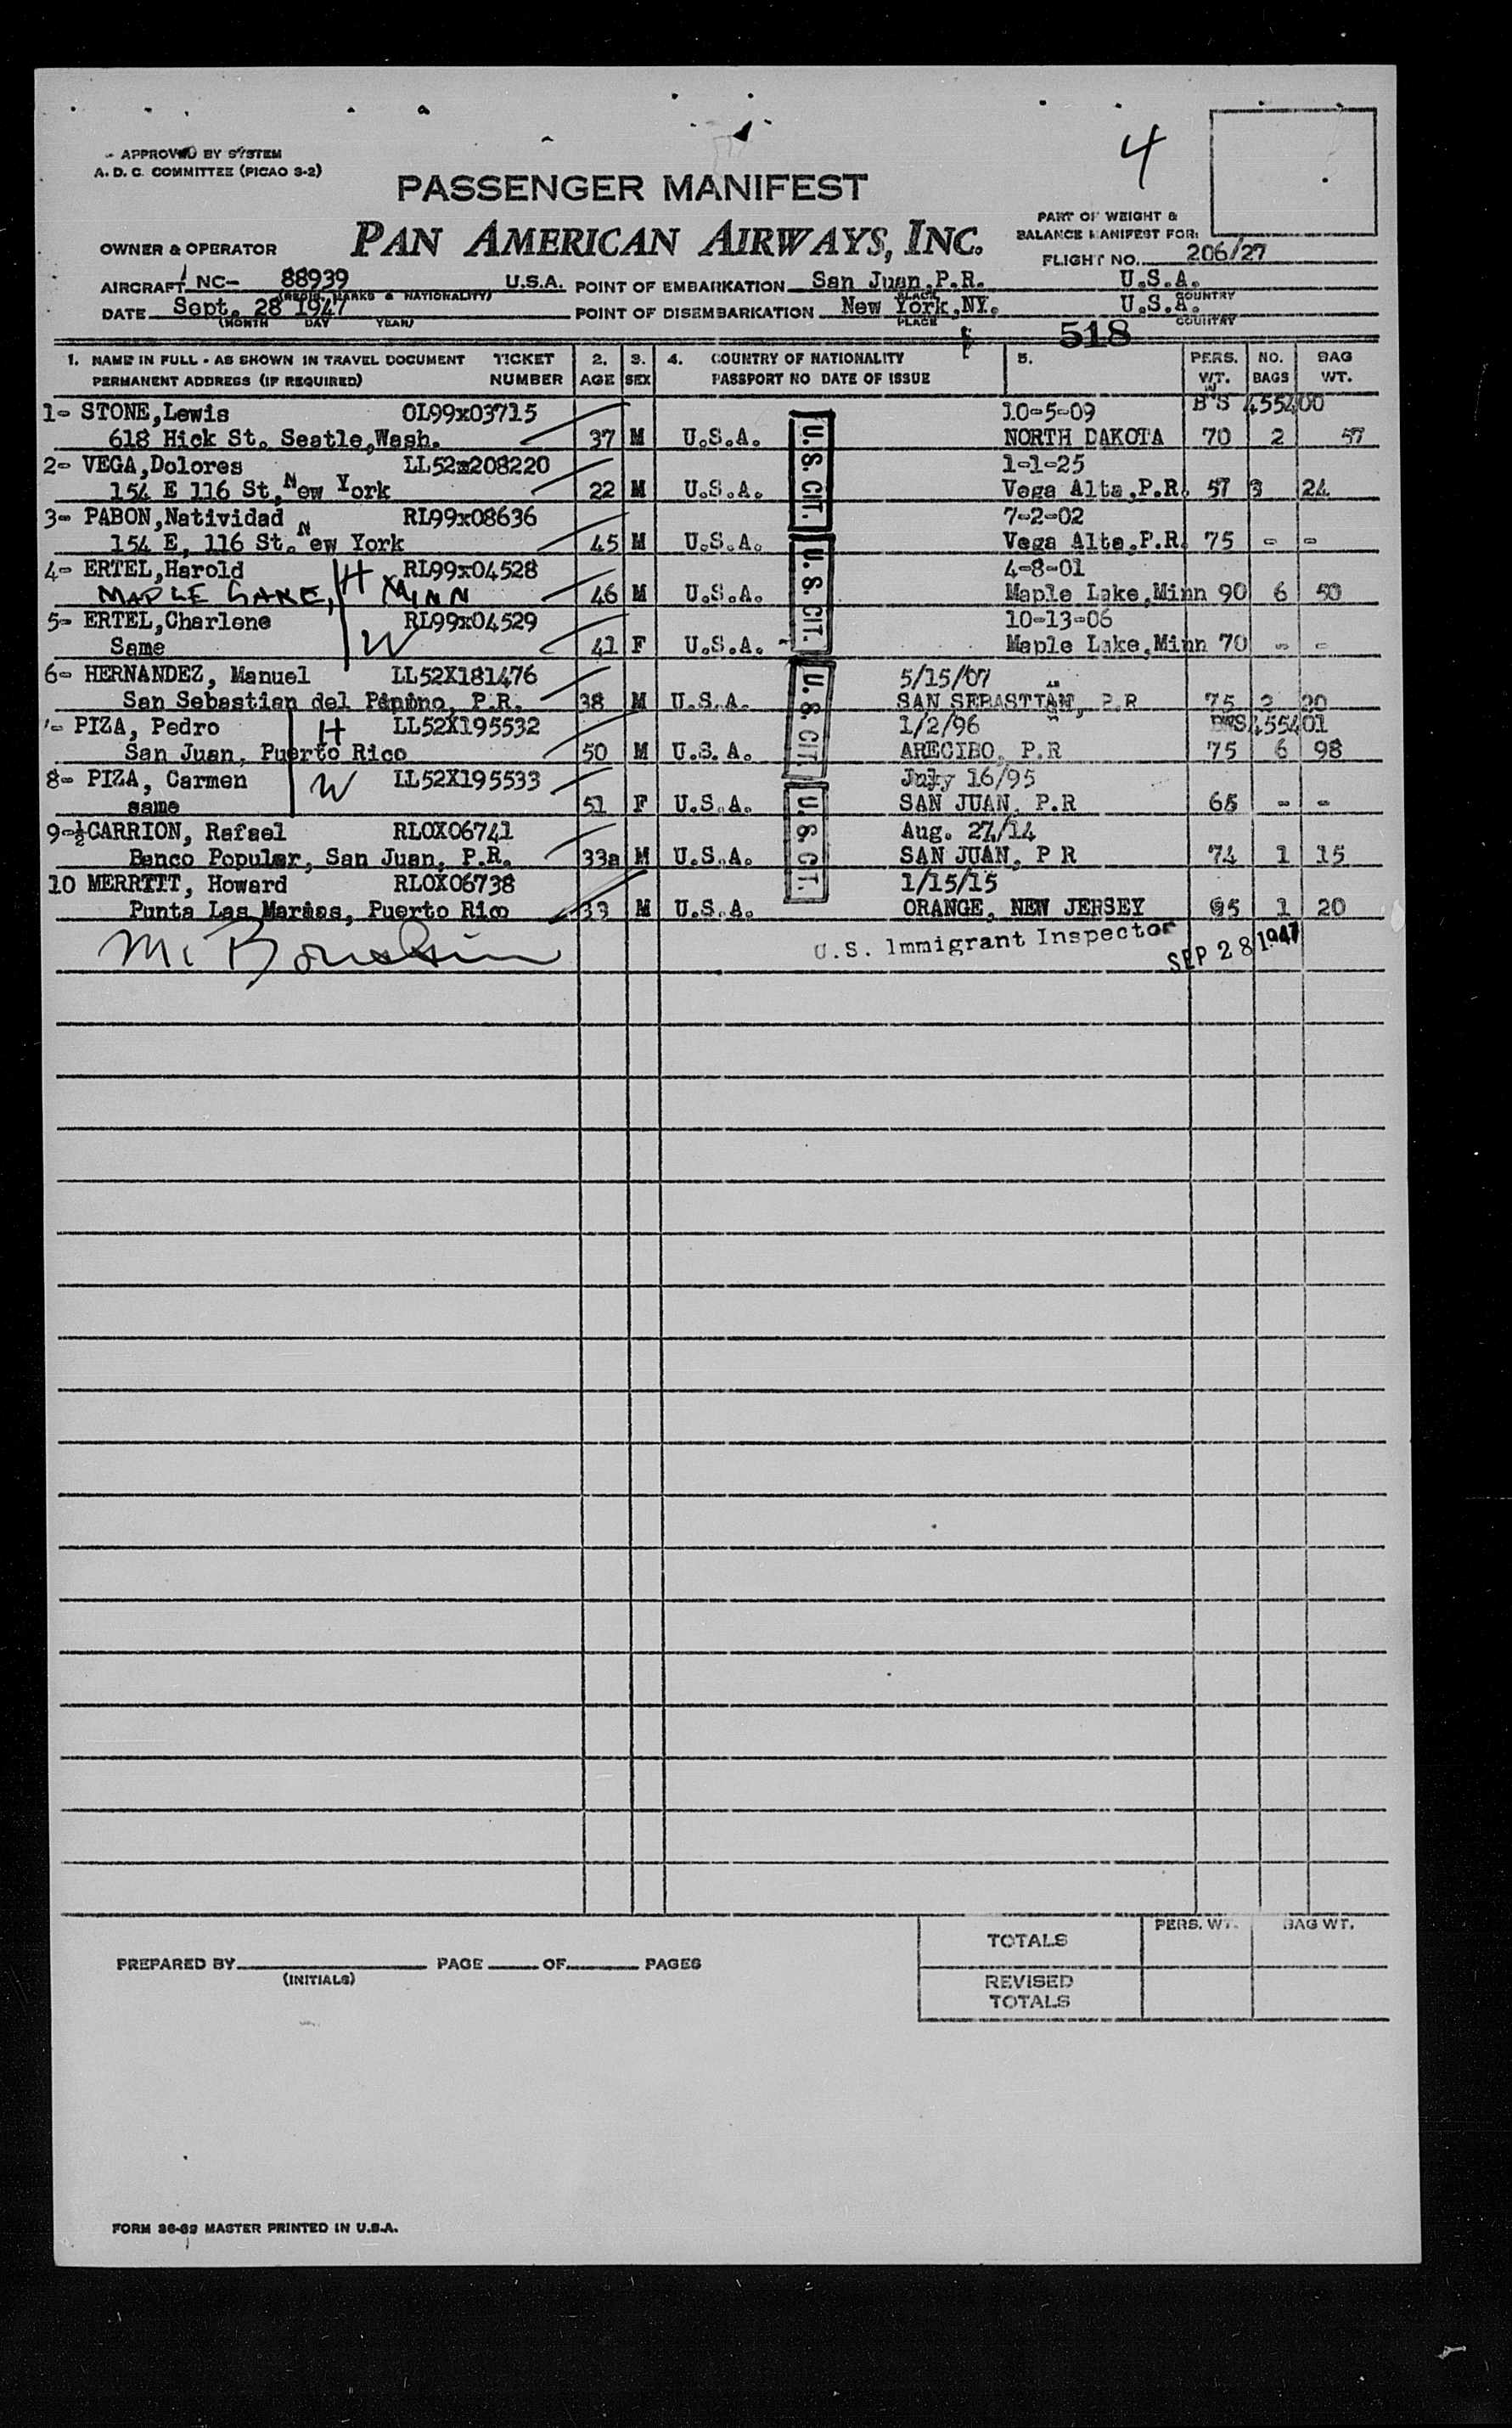 APPROVED BY SYSTEM
A. D. C. COMMITTEE (PICAO S-2)
4
PASSENGER MANIFEST
PAN AMERICAN AIRWAYS, INC.
PART OF WEIGHT &
BALANCE MANIFEST FOR:
OWNER & OPERATOR
FLIGHT NO. 206/27
AIRCRAFT NC- 88939 U.S.A. POINT OF EMBARKATION San Juan,P.R. U.S.A.
(REGIS. MARKS & NATIONALITY) PLACE COUNTRY
DATE Sept. 28 1947 POINT OF DISEMBARKATION New York,NY. U.S.A.
(MONTH DAY YEAR) PLACE COUNTRY
518
1. NAME IN FULL - AS SHOWN IN TRAVEL DOCUMENT TICKET 2. 3. 4. COUNTRY OF NATIONALITY 5. PERS. NO. BAG
PERMANENT ADDRESS (IF REQUIRED) NUMBER AGE SEX PASSPORT NO DATE OF ISSUE WT. BAGS WT.
1- STONE,Lewis OL99x03715 10-5-09 B'S 455400
618 Hick St. Seatle,Wash. 37 M U.S.A. NORTH DAKOTA 70 2 57
2- VEGA,Dolores LL52x208220 1-1-25
154 E 116 St,New York 22 M U.S.A. Vega Alta,P.R. 57 3 24
3- PABON,Natividad RL99x08636 7-2-02
154 E, 116 St.New York 45 M U.S.A. Vega Alta,P.R. 75 - -
4- ERTEL,Harold H RL99x04528 4-8-01
MAPLE LAKE, MINN 46 M U.S.A. Maple Lake,Minn 90 6 50
5- ERTEL,Charlene W RL99x04529 10-13-06
Same 41 F U.S.A. Maple Lake,Minn 70 - -
6- HERNANDEZ, Manuel LL52X181476 5/15/07
San Sebastian del Pepino, P.R. 38 M U.S.A. SAN SEBASTIAN, P.R 75 2 20
- PIZA, Pedro H LL52X195532 1/2/96 455401
San Juan, Puerto Rico 50 M U.S.A. ARECIBO, P.R 75 6 98
8- PIZA, Carmen W LL52X195533 July 16/95
same 51 F U.S.A. SAN JUAN, P.R 65 - -
9-½CARRION, Rafael RLOX06741 Aug. 27/14
Banco Popular, San Juan, P.R. 33a M U.S.A. SAN JUAN, P R 74 1 15
10 MERRTIT, Howard RLOX06738 1/15/15
Punta Las Marias, Puerto Rico 33 M U.S.A. ORANGE, NEW JERSEY 95 1 20
U.S. CIT.
U.S. CIT.
U.S. CIT.
U.S. CIT.
U.S. Immigrant Inspector SEP 28 1947
TOTALS PERS. WT. BAG WT.
PREPARED BY PAGE OF PAGES
(INITIALS)
REVISED
TOTALS
FORM 36-69 MASTER PRINTED IN U.S.A.